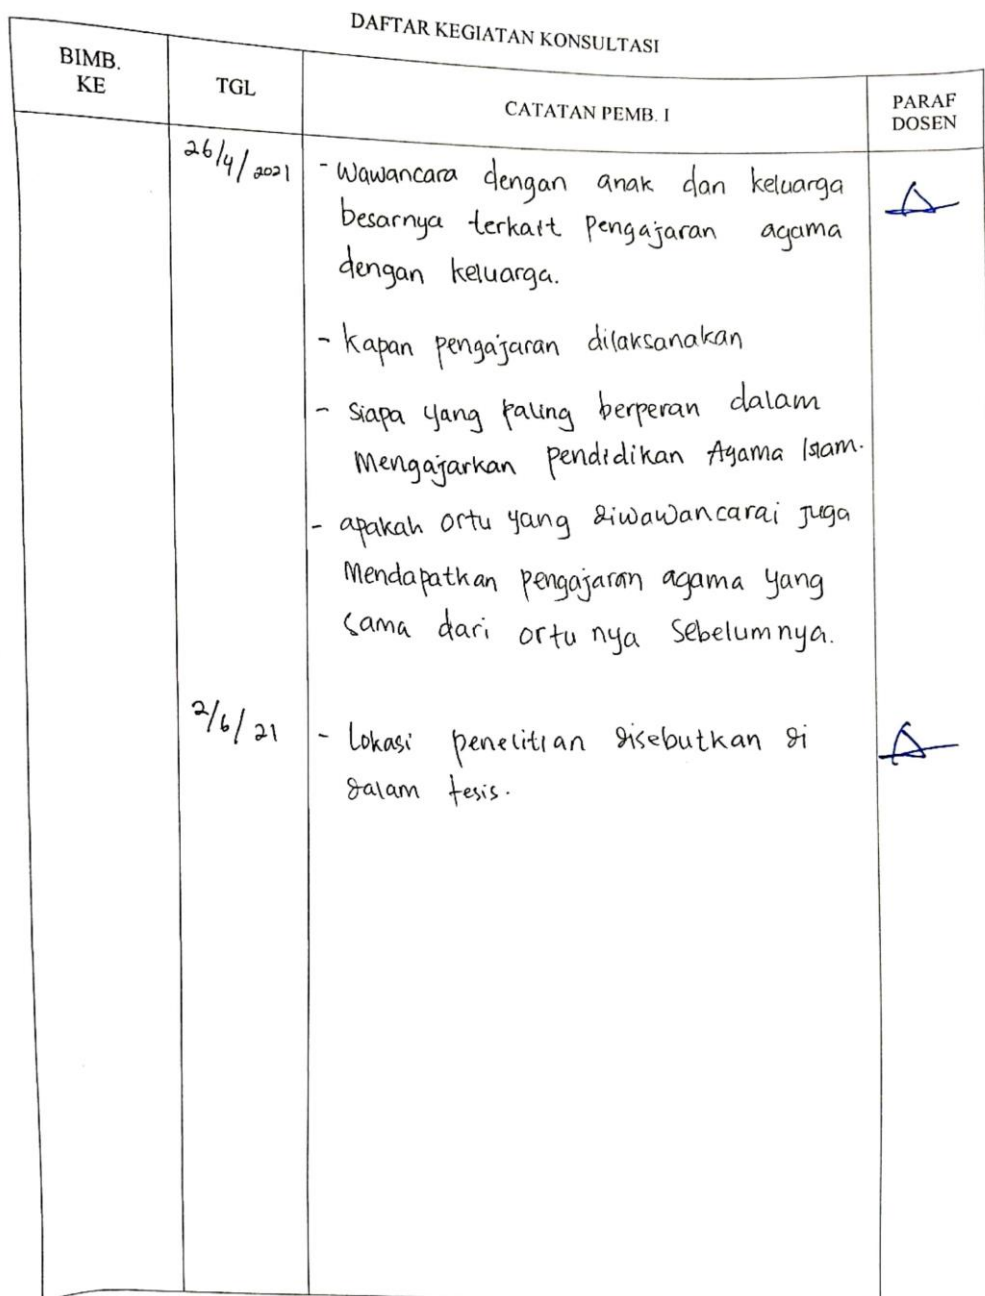 DAFTAR KEGIATAN KONSULTASI
BIMB. KE
TGL
CATATAN PEMB. I
PARAF DOSEN
26/4/2021
- Wawancara dengan anak dan keluarga
besarnya terkait Pengajaran agama
dengan keluarga.
- Kapan pengajaran dilaksanakan
- Siapa yang paling berperan dalam
Mengajarkan pendidikan Agama Islam.
- apakah ortu yang diwawancarai juga
Mendapatkan pengajaran agama yang
sama dari ortu nya Sebelumnya.
2/6/21
- Lokasi penelitian disebutkan di
dalam tesis.